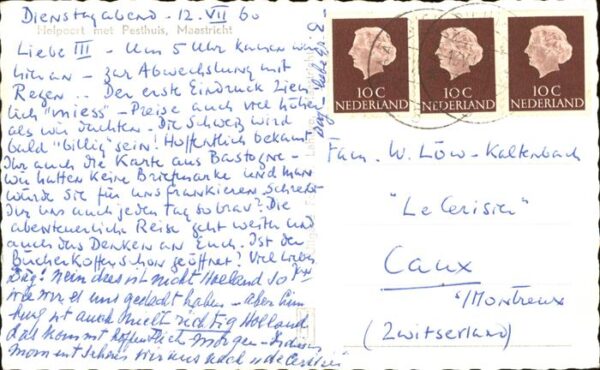 Dienstagabend - 12. VII 60
Helpoort met Pesthuis, Maastricht
Liebe III - Um 5 Uhr kamen wir
hier an - zur Abwechslung mit
Regen .. Der erste Eindruck ziem
lich "miess" - Preise auch viel höher
als wir dachten - Die Schweiz wird
bald "billig" sein! Hoffentlich bekamt
Ihr auch die Karte aus Bastogne -
wir hatten keine Briefmarke und man
würde sie für uns frankieren Schreibt
Ihr uns auch jeden Tag so brav? Die
abenteuerliche Reise geht weiter und
auch das Denken an Euch. Ist der
Bücherkoffer schon geöffnet? Viel
Dag! Nein das ist nicht Holland so
wie wir es uns gedacht haben - aber
ist auch nicht richtig Holland
das kommt hoffentlich morgen -
moment sehnen wir uns nach "Le Cerisier"
Dag - liebe
10 C
NEDERLAND
10 C
NEDERLAND
10 C
NEDERLAND
Fam. W. Löw-Kaltenbach
"Le Cerisier"
Caux
s/Montreux
(Zwitserland)